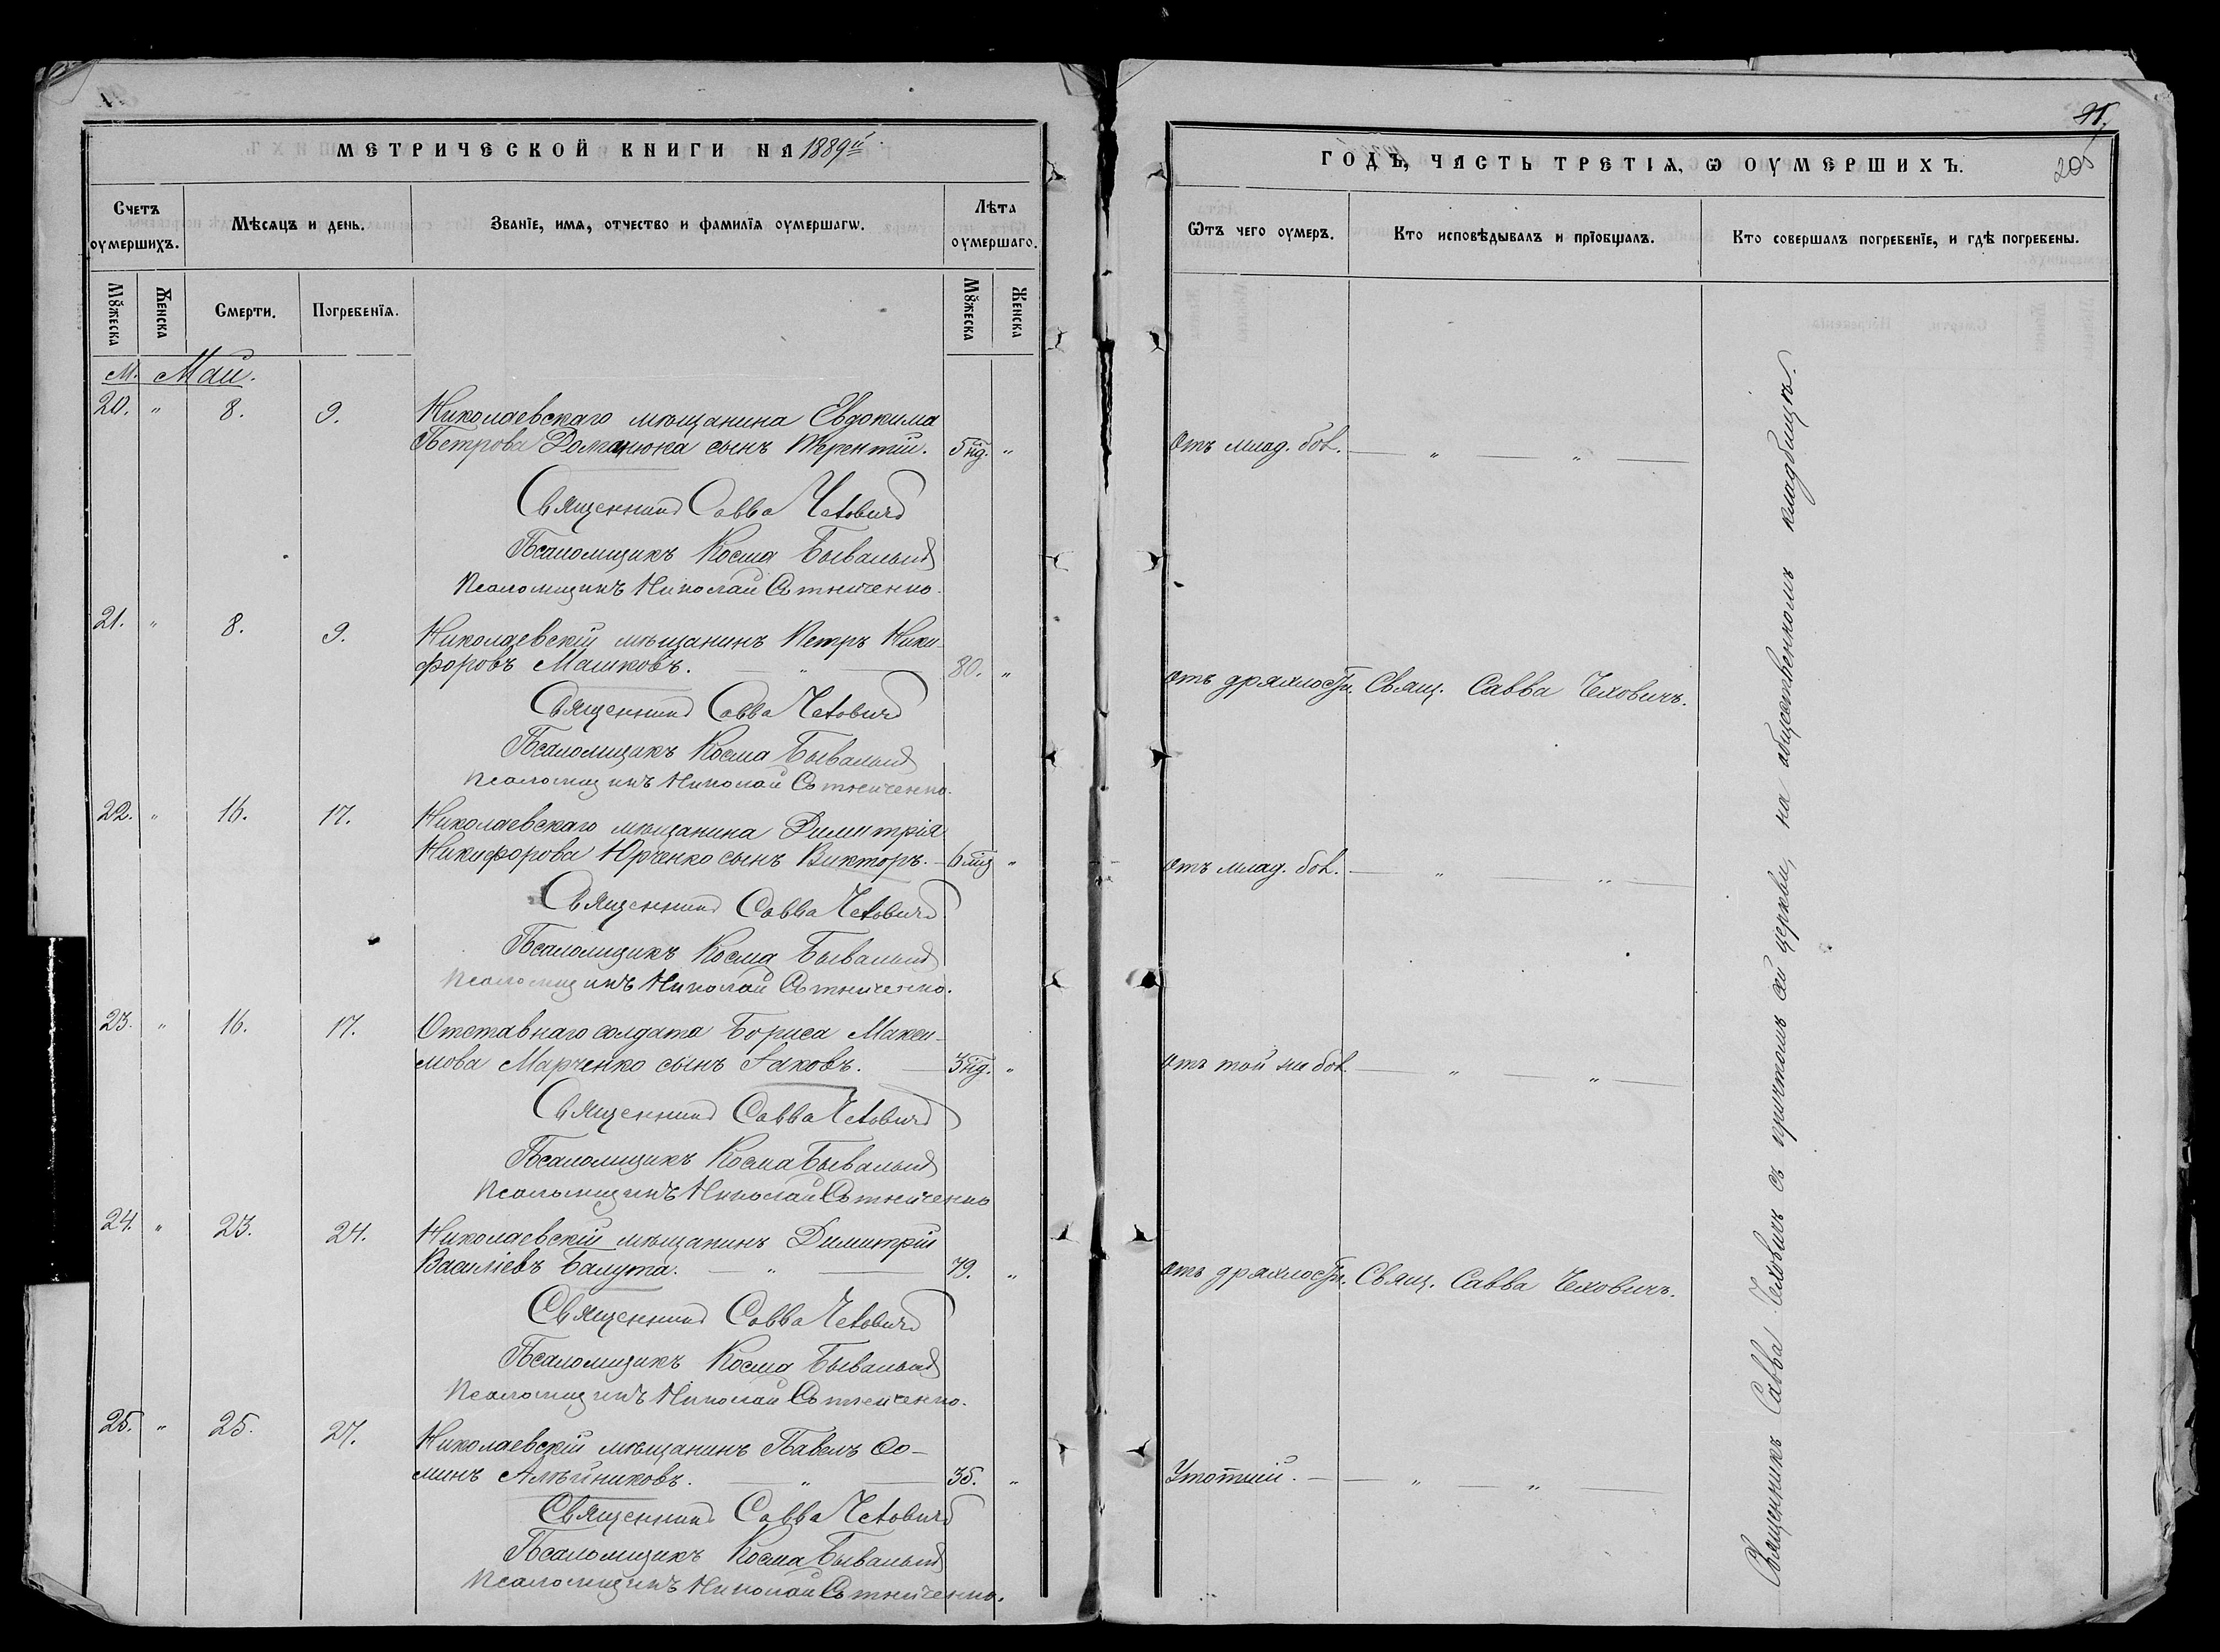 МЕТРИЧЕСКОЙ КНИГИ НА 1889й
Счетъ оумершихъ.
Мѣсяцъ и день.
Званїе, имѧ, отчество и фамилїѧ оумершагѡ.
Лѣта оумершаго.
Мꙋжеска
Женска
Смерти.
Погребенїѧ.
Мꙋжеска
Женска
М. Май.
20. " 8. 9. Николаевскаго мѣщанина Евдокима
Петрова Доманюка сынъ Терентій. 5 нд. "
Священникъ Савва Чеховичъ
Псаломщикъ Косма Бывалый
Псаломщикъ Николай Ситниченко.
21. " 8. 9. Николаевскій мѣщанинъ Петръ Ники-
форовъ Машковъ. " 80. "
Священникъ Савва Чеховичъ
Псаломщикъ Косма Бывалый
Псаломщикъ Николай Ситниченко.
22. " 16. 17. Николаевскаго мѣщанина Димитрія
Никифорова Юрченко сынъ Викторъ. 6 мц "
Священникъ Савва Чеховичъ
Псаломщикъ Косма Бывалый
Псаломщикъ Николай Ситниченко.
23. " 16. 17. Отставнаго солдата Бориса Макси-
мова Марченко сынъ Іаковъ. 3 нд. "
Священникъ Савва Чеховичъ
Псаломщикъ Косма Бывалый
Псаломщикъ Николай Ситниченко
24. " 23. 24. Николаевскій мѣщанинъ Димитрій
Василіевъ Балута. " 79. "
Священникъ Савва Чеховичъ
Псаломщикъ Косма Бывалый
Псаломщикъ Николай Ситниченко.
25. " 25. 27. Николаевскій мѣщанинъ Павелъ Ѳо-
минъ Алѣйниковъ. " 35. "
Священникъ Савва Чеховичъ
Псаломщикъ Косма Бывалый
Псаломщикъ Николай Ситниченко.
205
ГОДЪ, ЧАСТЬ ТРЕТІѦ, Ѡ ОУМЕРШИХЪ.
Ѿтъ чего оумеръ.
Кто исповѣдывалъ и прїобщалъ.
Кто совершалъ погребенїе, и гдѣ погребены.
Отъ млад. бол. " "
отъ дряхлости. Свящ. Савва Чеховичъ.
отъ млад. бол. " "
отъ той же бол. " "
отъ дряхлости. Свящ. Савва Чеховичъ.
Утопшій. " "
Священникъ Савва Чеховичъ съ причтомъ сей церкви, на общественномъ кладбищѣ.